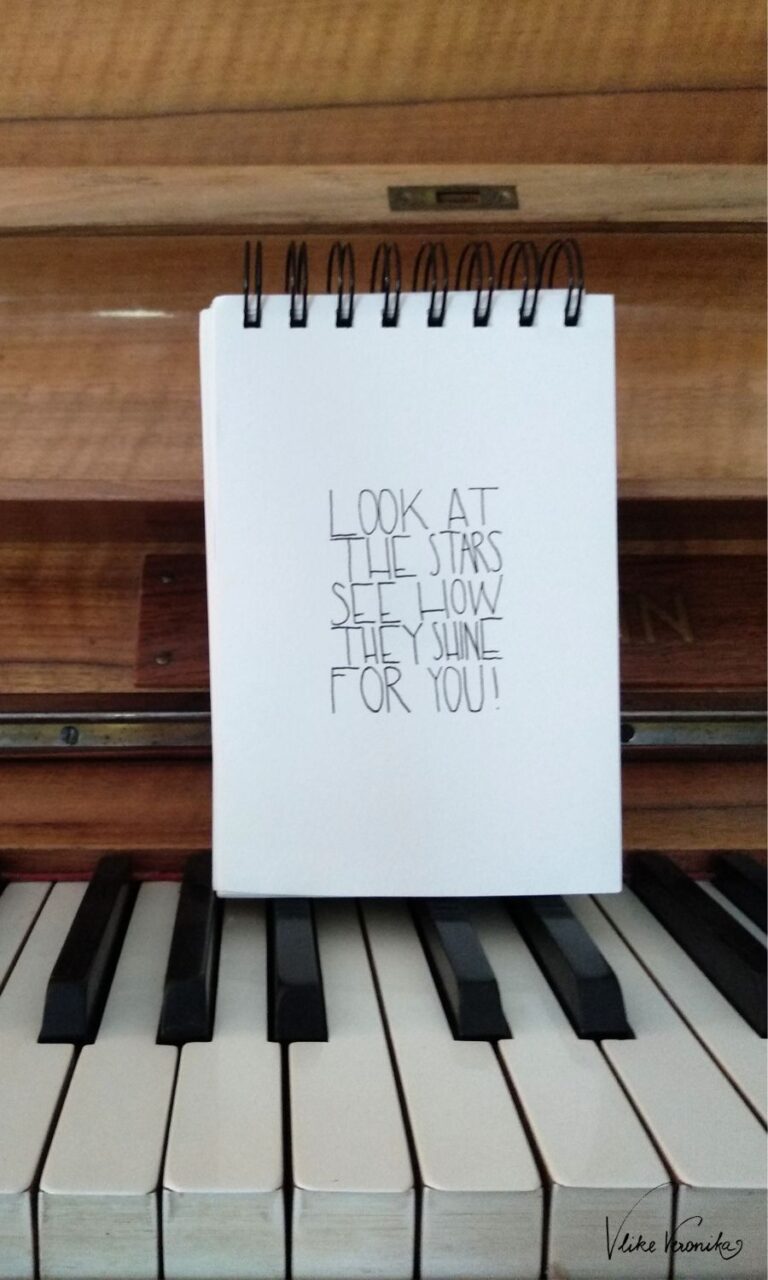 LOOK AT
THE STARS
SEE HOW
THEY SHINE
FOR YOU!
IN
V like Veronika